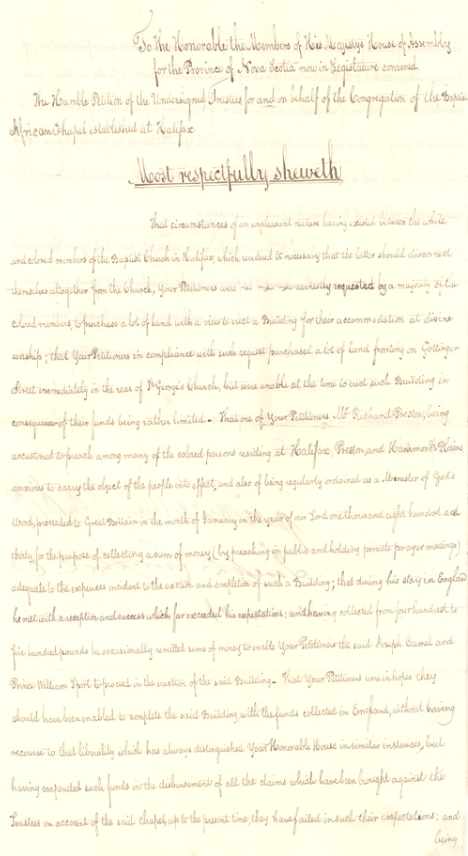 To the Honorable the Members of His Majesty's House of Assembly
for the Province of Nova Scotia now in Legislature convened.
The Humble Petition of the Undersigned Trustees for and on behalf of the Congregation of the Baptist
African Chapel established at Halifax
Most respectfully sheweth
That circumstances of an unpleasant nature having existed between the white
and colored members of the Baptist Church in Halifax, which rendered it necessary that the latter should disconnect
themselves altogether from the Church, Your Petitioners were earnestly requested by a majority of the
colored members, to purchase a lot of land with a view to erect a Building for their accommodation at divine
worship; that Your Petitioners in compliance with such request purchased a lot of land fronting on Gottingen
Street immediately in the rear of St George's Church, but were unable at the time to erect such Building in
consequence of their funds being rather limited. That one of Your Petitioners Mr Richard Preston; being
accustomed to preach among many of the colored persons residing at Halifax, Preston, and Hammond's Plains,
anxious to carry the object of the people into effect, and also of being regularly ordained as a Menester of God's
Word, proceeded to Great Britain in the month of January in the year of our Lord one thousand eight hundred and
thirty for the purpose of collecting a sum of money (by preaching in public and holding private prayer meetings)
adequate to the expenses incident to the erection and completion of such a Building; that during his stay in England
he met with a reception and success which far exceeded his expectations; and having collected from four hundred to
five hundred pounds he occasionally remitted sums of money to enable Your Petitioners the said Joseph Camel and
Prince William Sport to proceed in the erection of the said Building. That Your Petitioners were in hopes they
should have been enabled to complete the said Building with the funds collected in England, without having
recourse to that liberality which has always distinguished Your Honorable House in similar instances, but
having expended such funds in the disbursement of all the claims which have been brought against the
Trustees on account of the said chapel up to the present time, they have failed in such their expectations; and
being